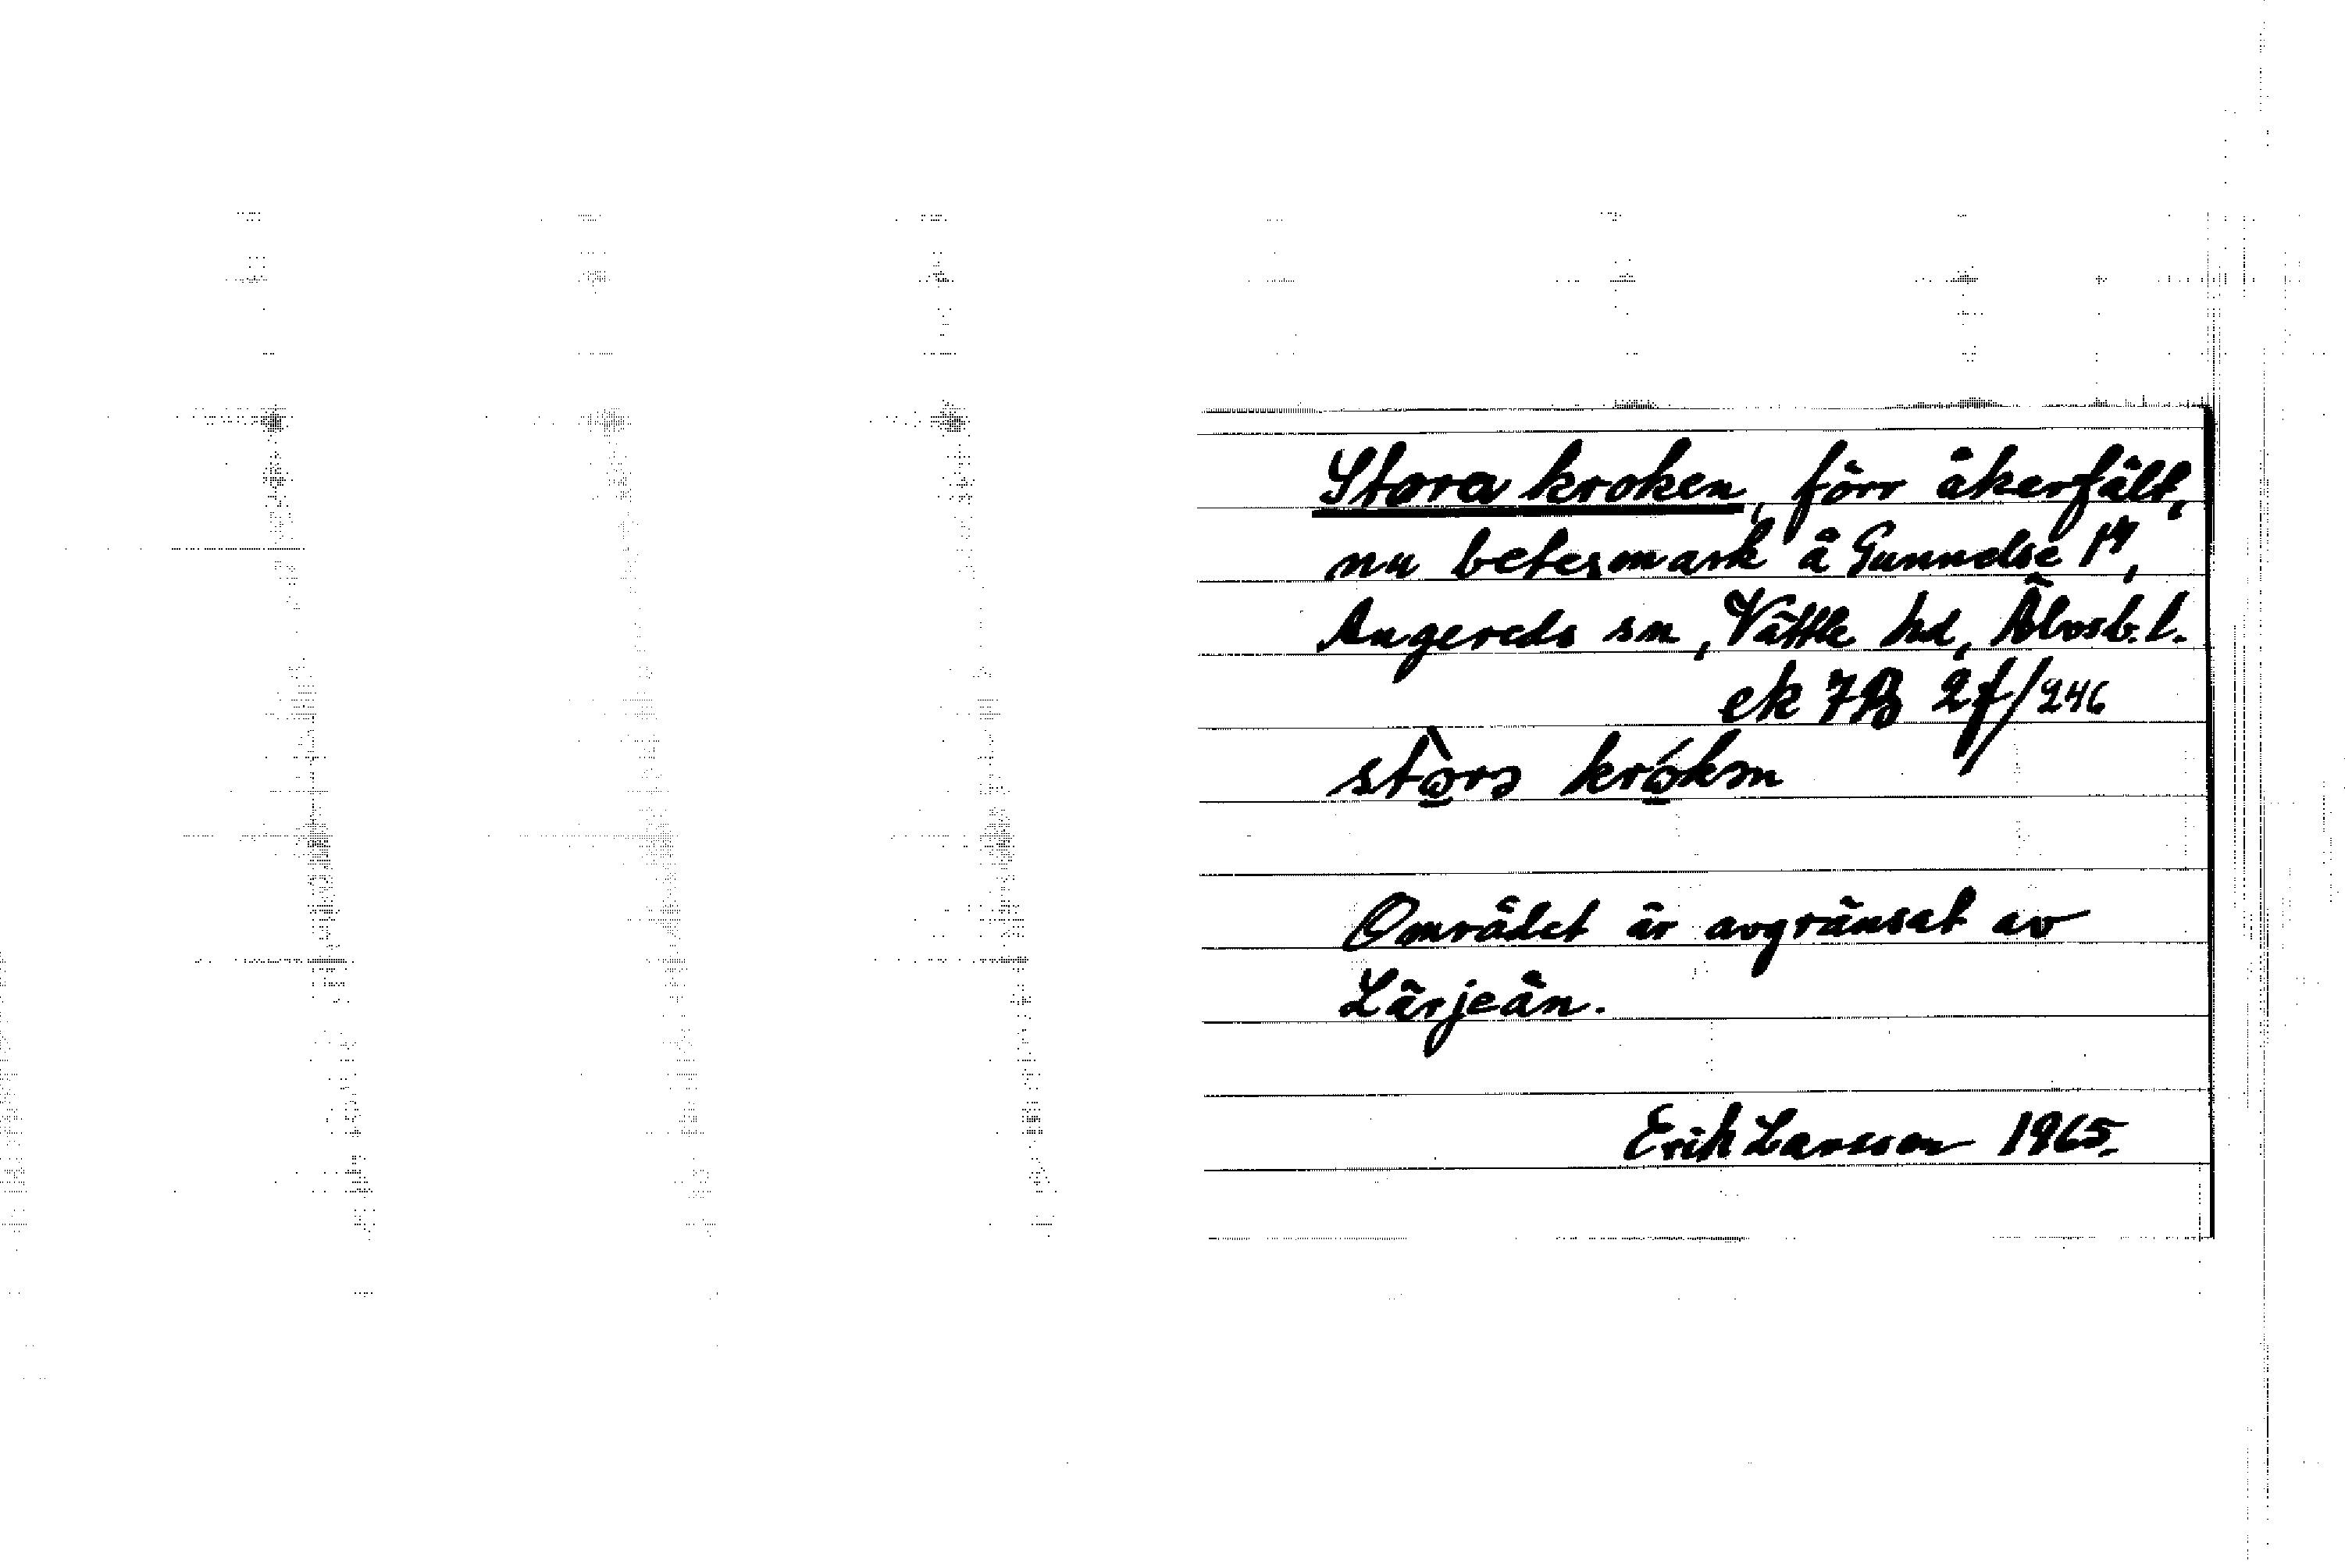 Stora kroken, förr åkerfält,
nu betesmark å Gunnelse 1⁴,
Angereds sn, Vättle hd, Älvsb.l.
ek 7B 2f/246
stòrə krókən
Området är avgränsat av
Lärjeån.
Erik Larsson 1965.